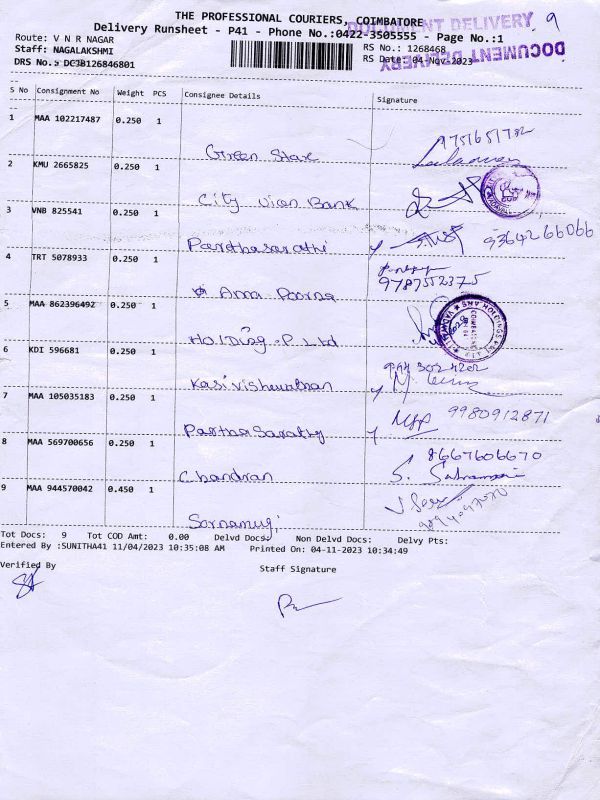 THE PROFESSIONAL COURIERS, COIMBATORE
DOCUMENT DELIVERY
9
Delivery Runsheet - P41 - Phone No.:0422-3505555 - Page No.:1
DOCUMENT DELIVERY
Route: V N R NAGAR
RS No.: 1268468
Staff: NAGALAKSHMI
RS Date: 04-Nov-2023
DRS No.: DCJB126846801
S No Consignment No Weight PCS Consignee Details Signature
1 MAA 102217487 0.250 1
Green Star 9751651782
2 KMU 2665825 0.250 1
City Union Bank
3 VNB 825541 0.250 1
Parthasarathi 9364266066
4 TRT 5078933 0.250 1
Anna Poorna 9787552375
5 MAA 862396492 0.250 1
HOLDing .P. Ltd
6 KDI 596681 0.250 1
Kasi vishwanathan
7 MAA 105035183 0.250 1
Partha Sarathy 9980912871
8 MAA 569700656 0.250 1
Chandran 8667606670
9 MAA 944570042 0.450 1
Tot Docs: 9 Tot COD Amt: 0.00 Delvd Docs: Non Delvd Docs: Delvy Pts:
Entered By :SUNITHA41 11/04/2023 10:35:08 AM Printed On: 04-11-2023 10:34:49
Verified By
Staff Signature